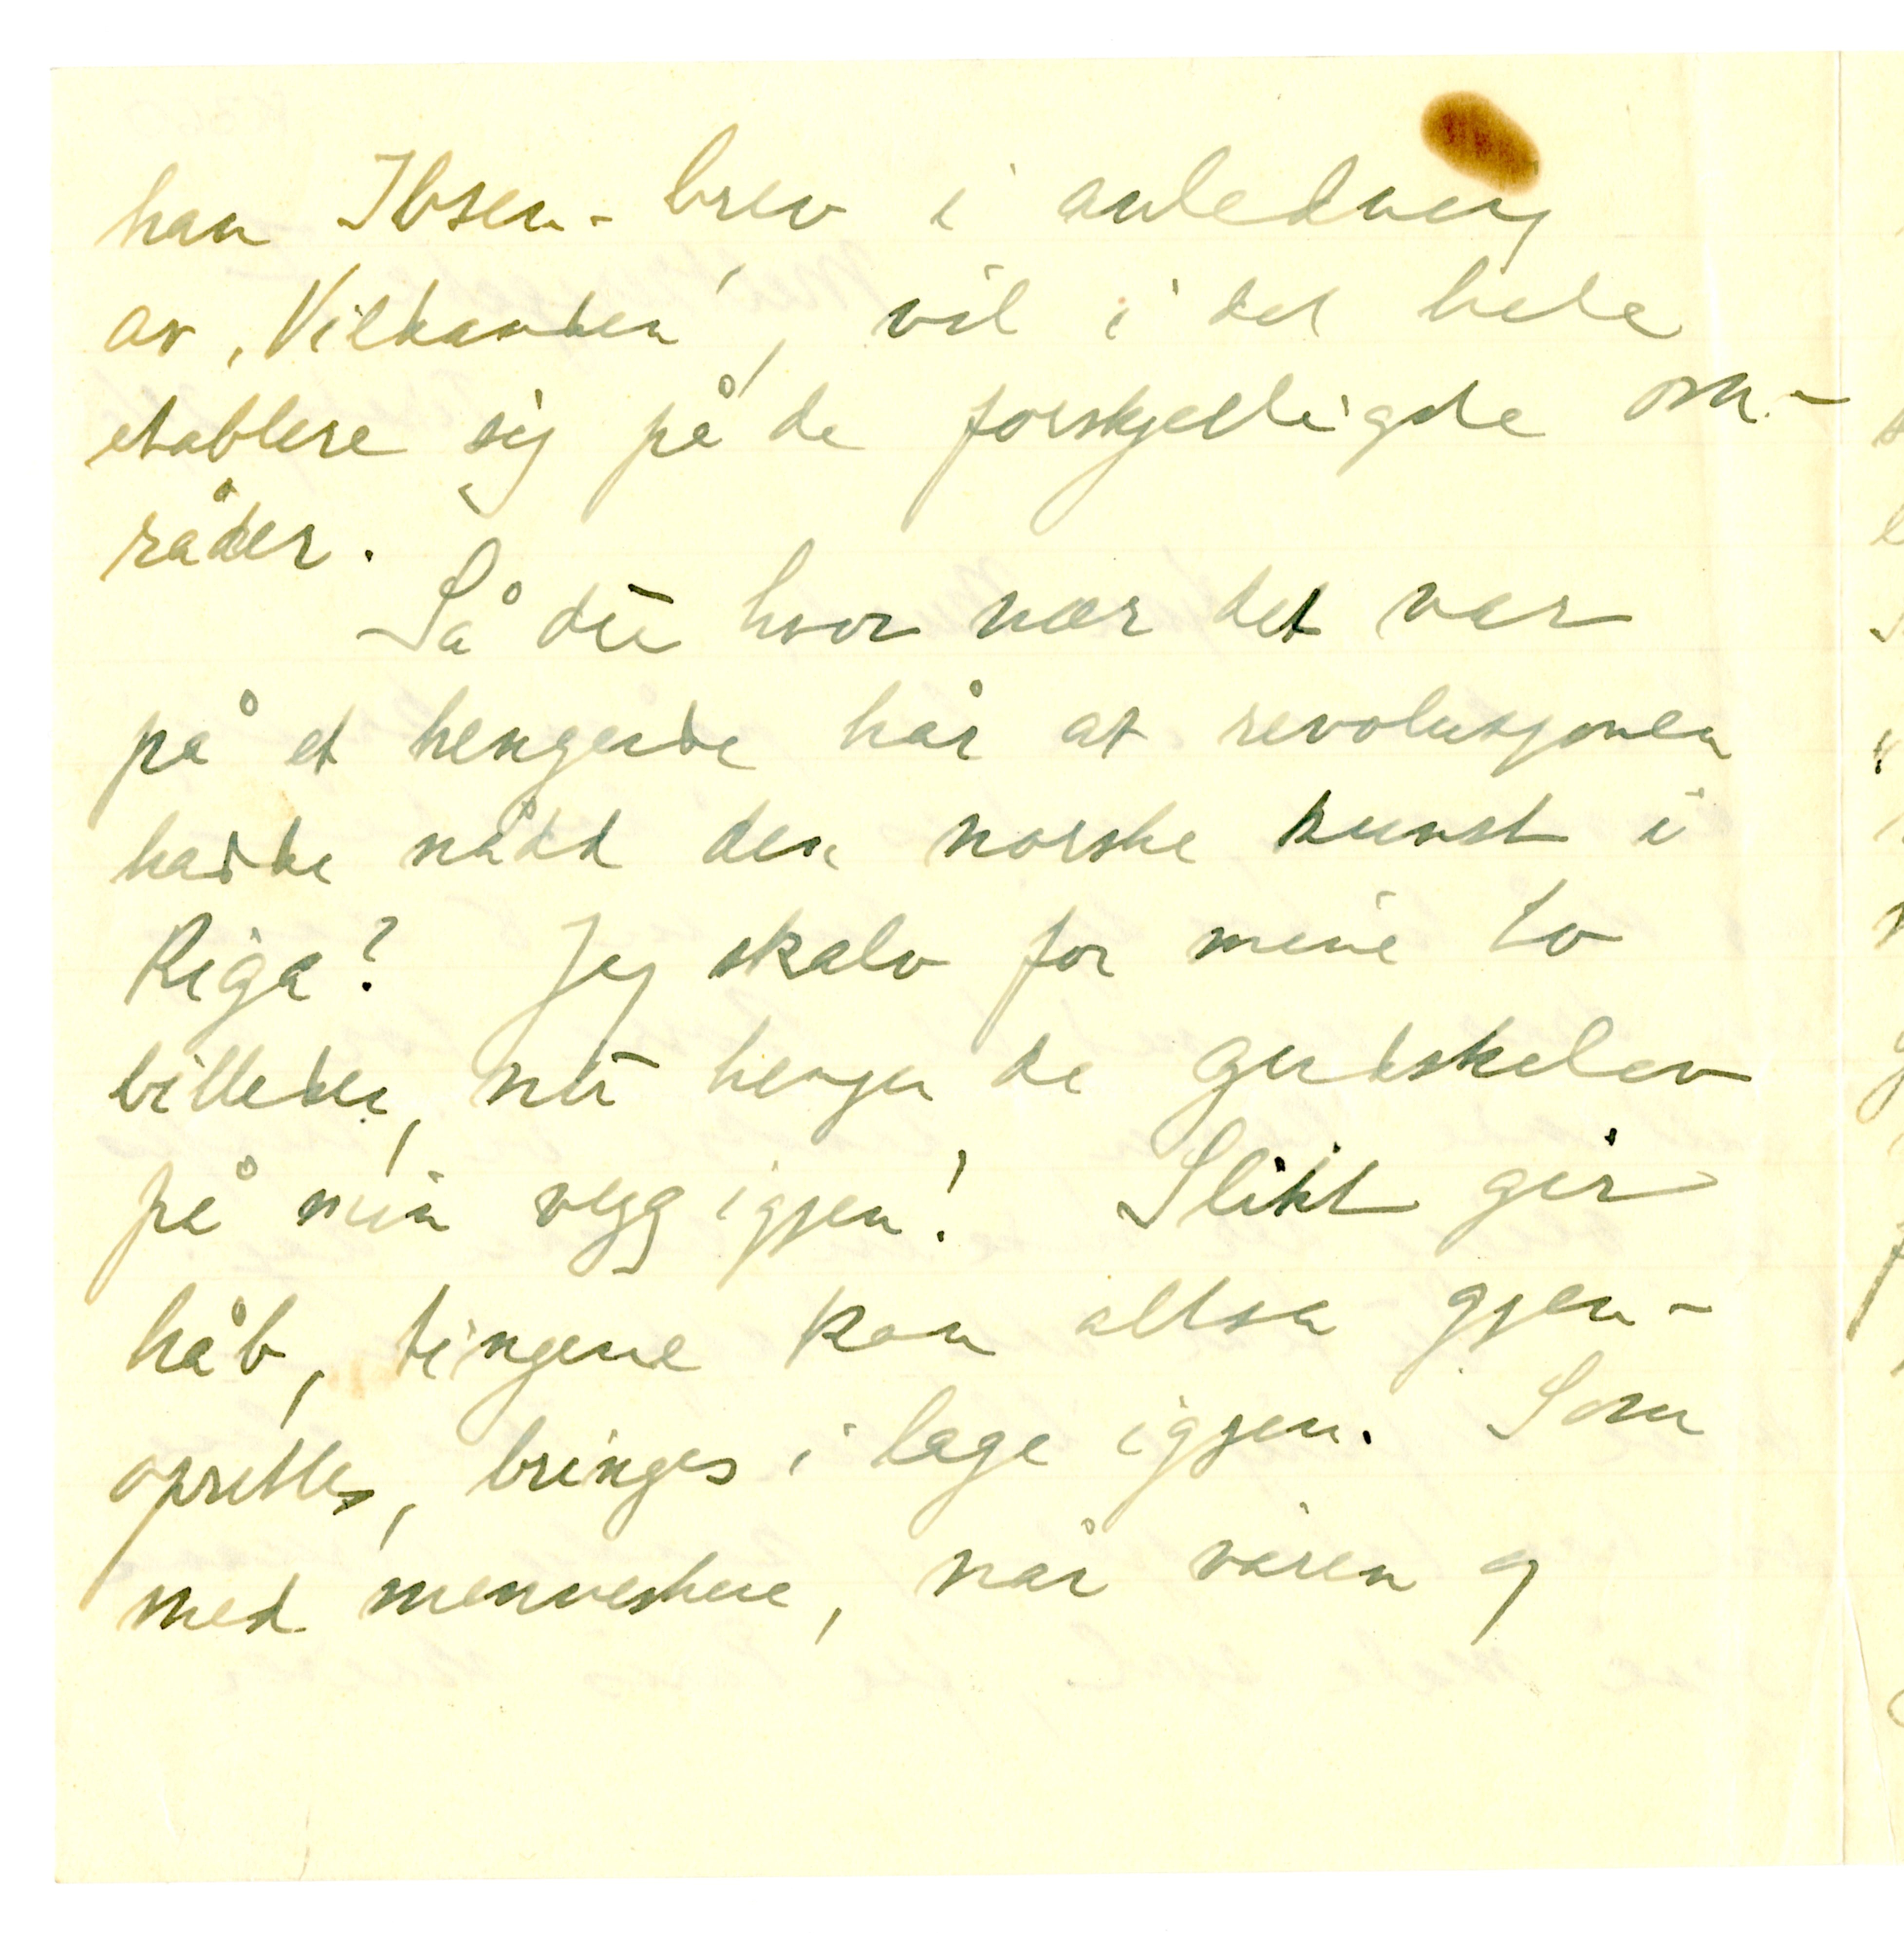 han Ibsen-brev i anledning
av „Vildanden", vil i det hele
etablere sig på de forskjelligste om-
råder.
Så du hvor nær det var
på et hengende hår at revolusjonen
hadde nådd den norske kunst i
Riga? Jeg skalv for mine to
billeder, nu henger de gudskelov
på min vegg igjen! Slikt gir
håb, tingene kan altså gjen-
oprettes, bringes i lage igjen. Som
med menneskene, når våren og